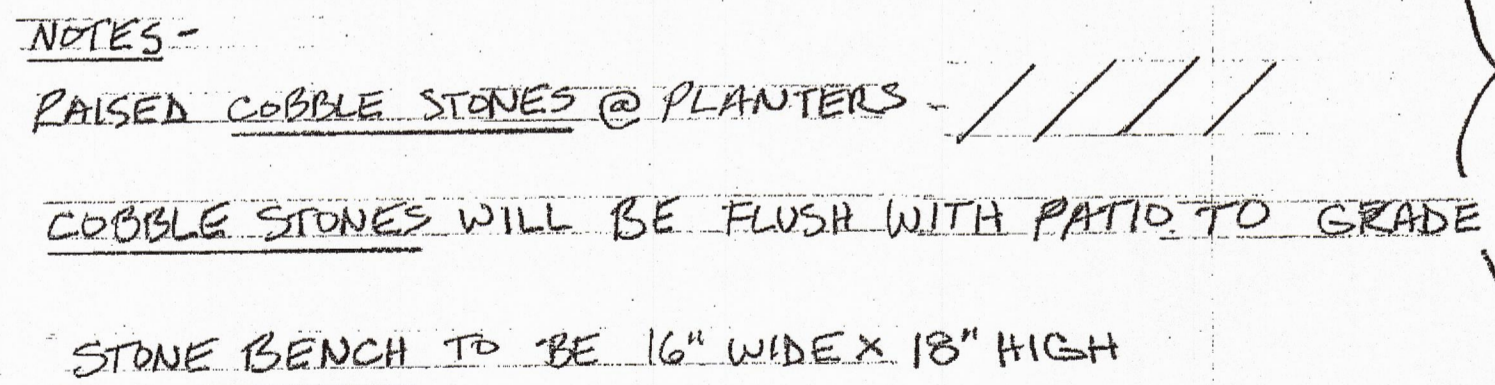 NOTES-
RAISED COBBLE STONES @ PLANTERS - ////
COBBLE STONES WILL BE FLUSH WITH PATIO TO GRADE
STONE BENCH TO BE 16" WIDE X 18" HIGH